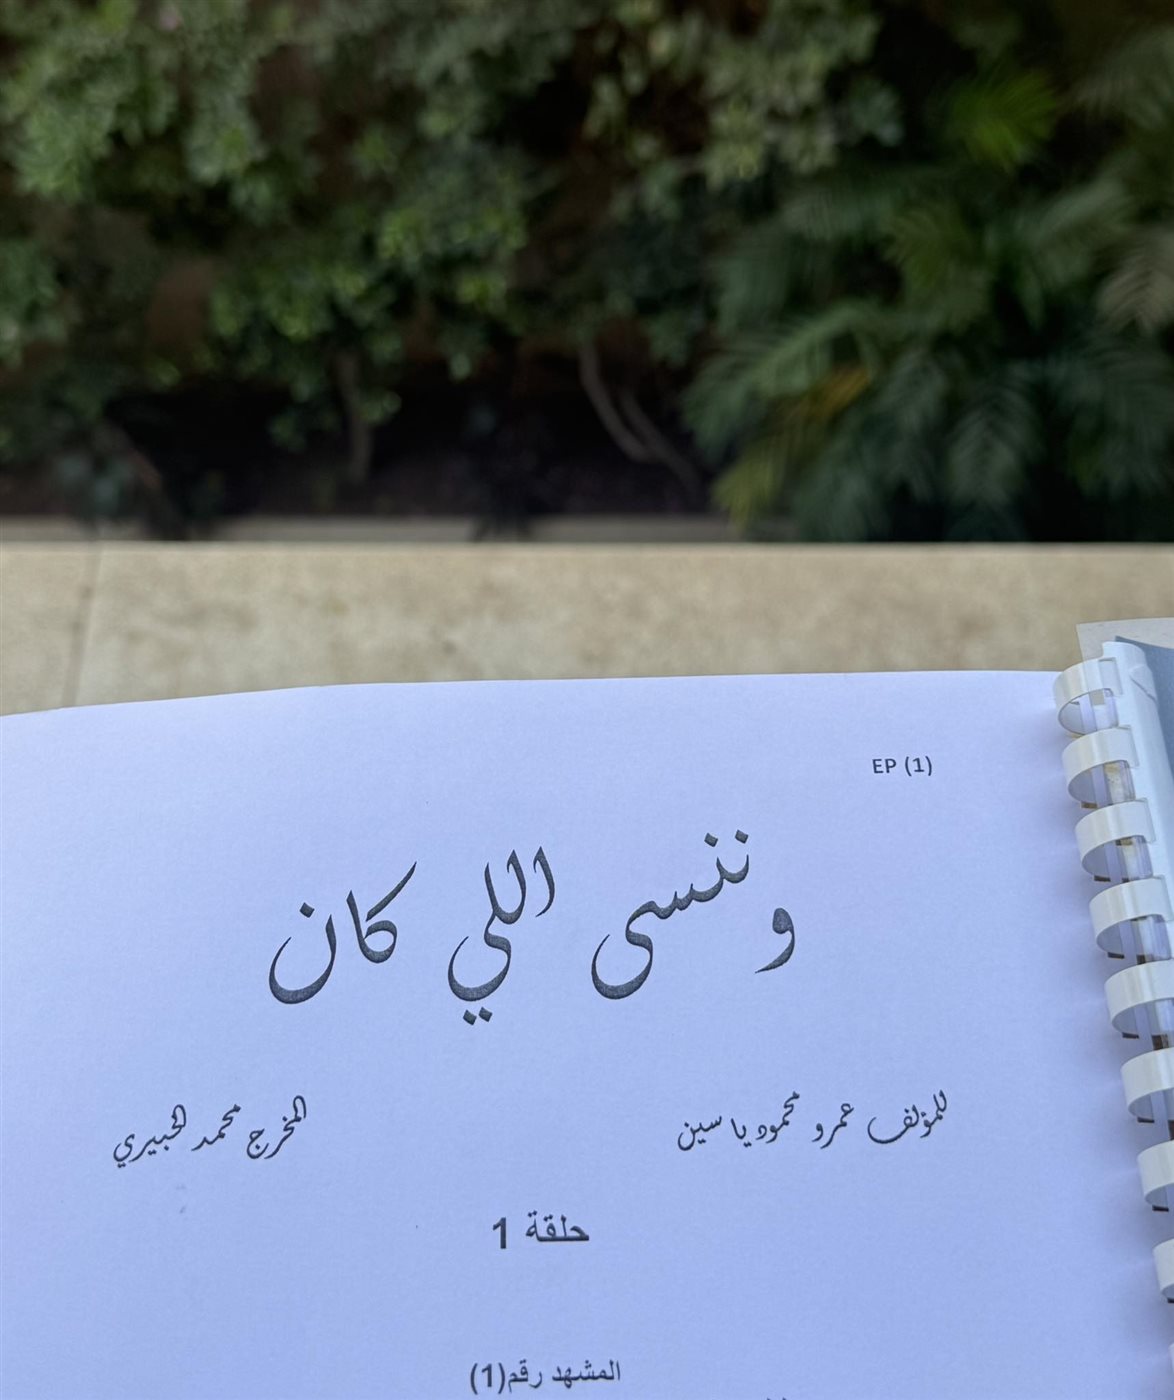 EP (1)
و ننسى اللي كان
للمؤلف عمرو محمود ياسين
المخرج محمد الخبيري
حلقة 1
المشهد رقم(1)